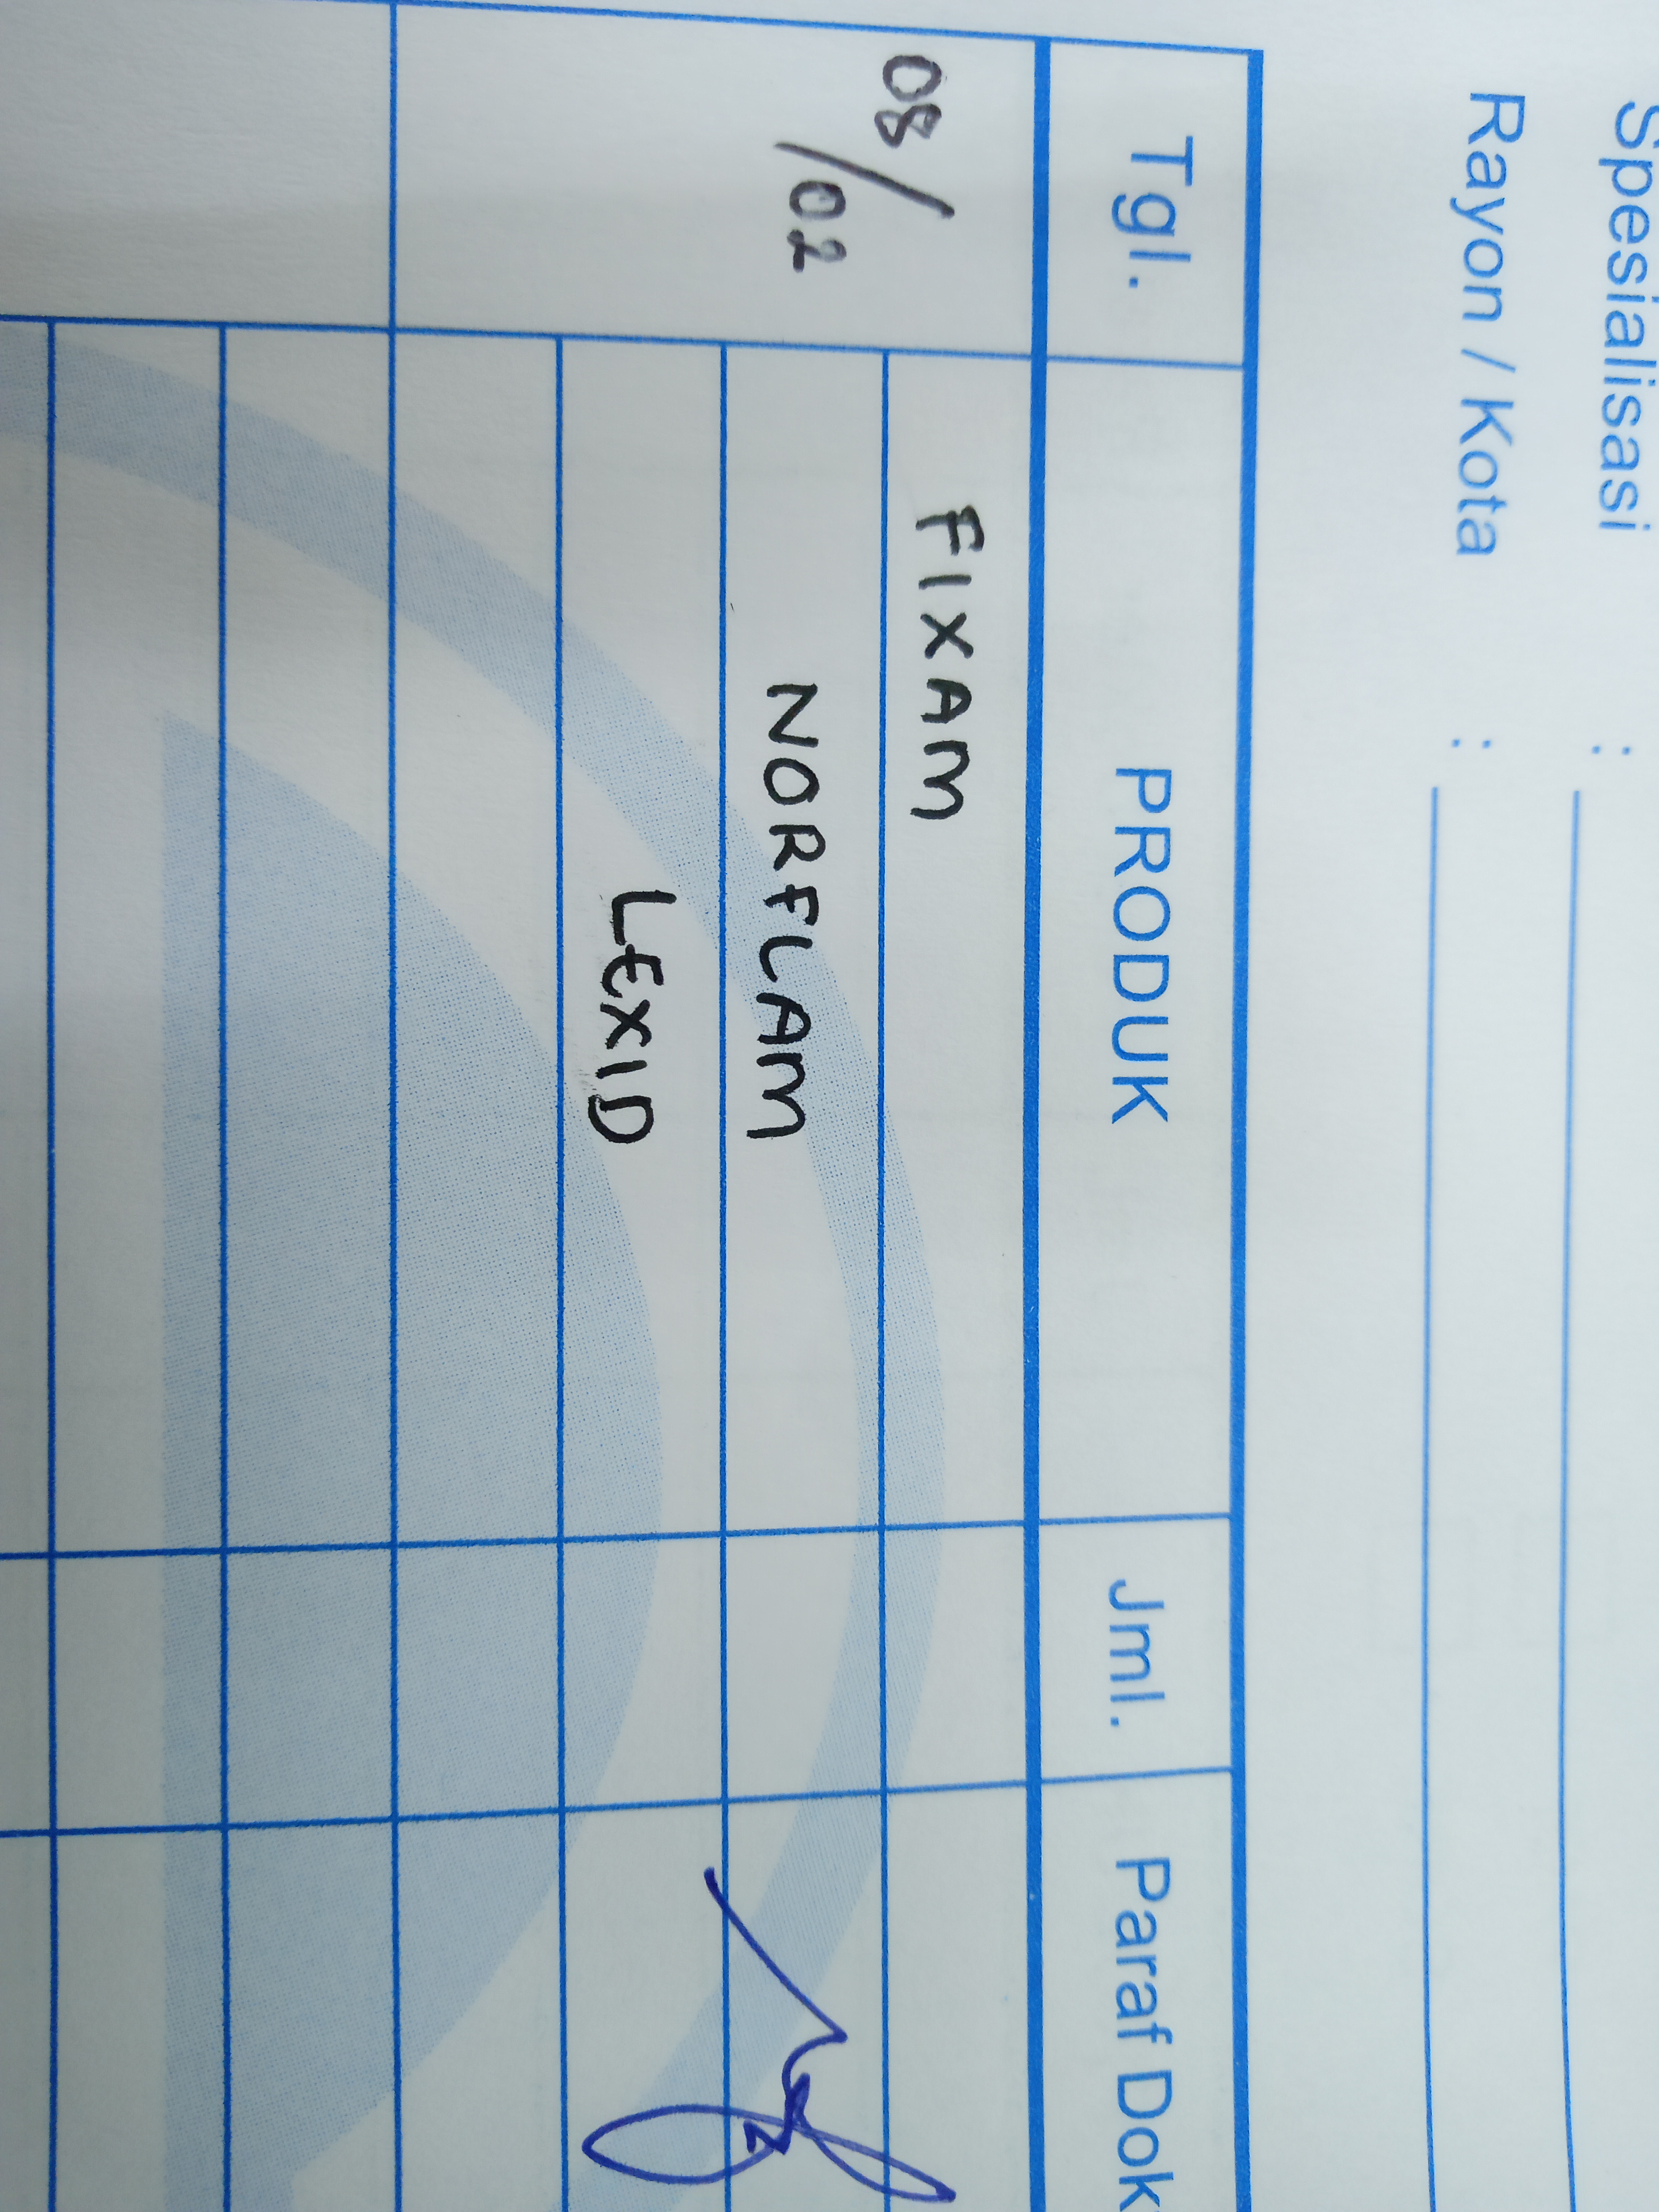 Spesialisasi :
Rayon / Kota :
Tgl. PRODUK Jml. Paraf Dok
08/02 FIXAM
NORFLAM
LEXID